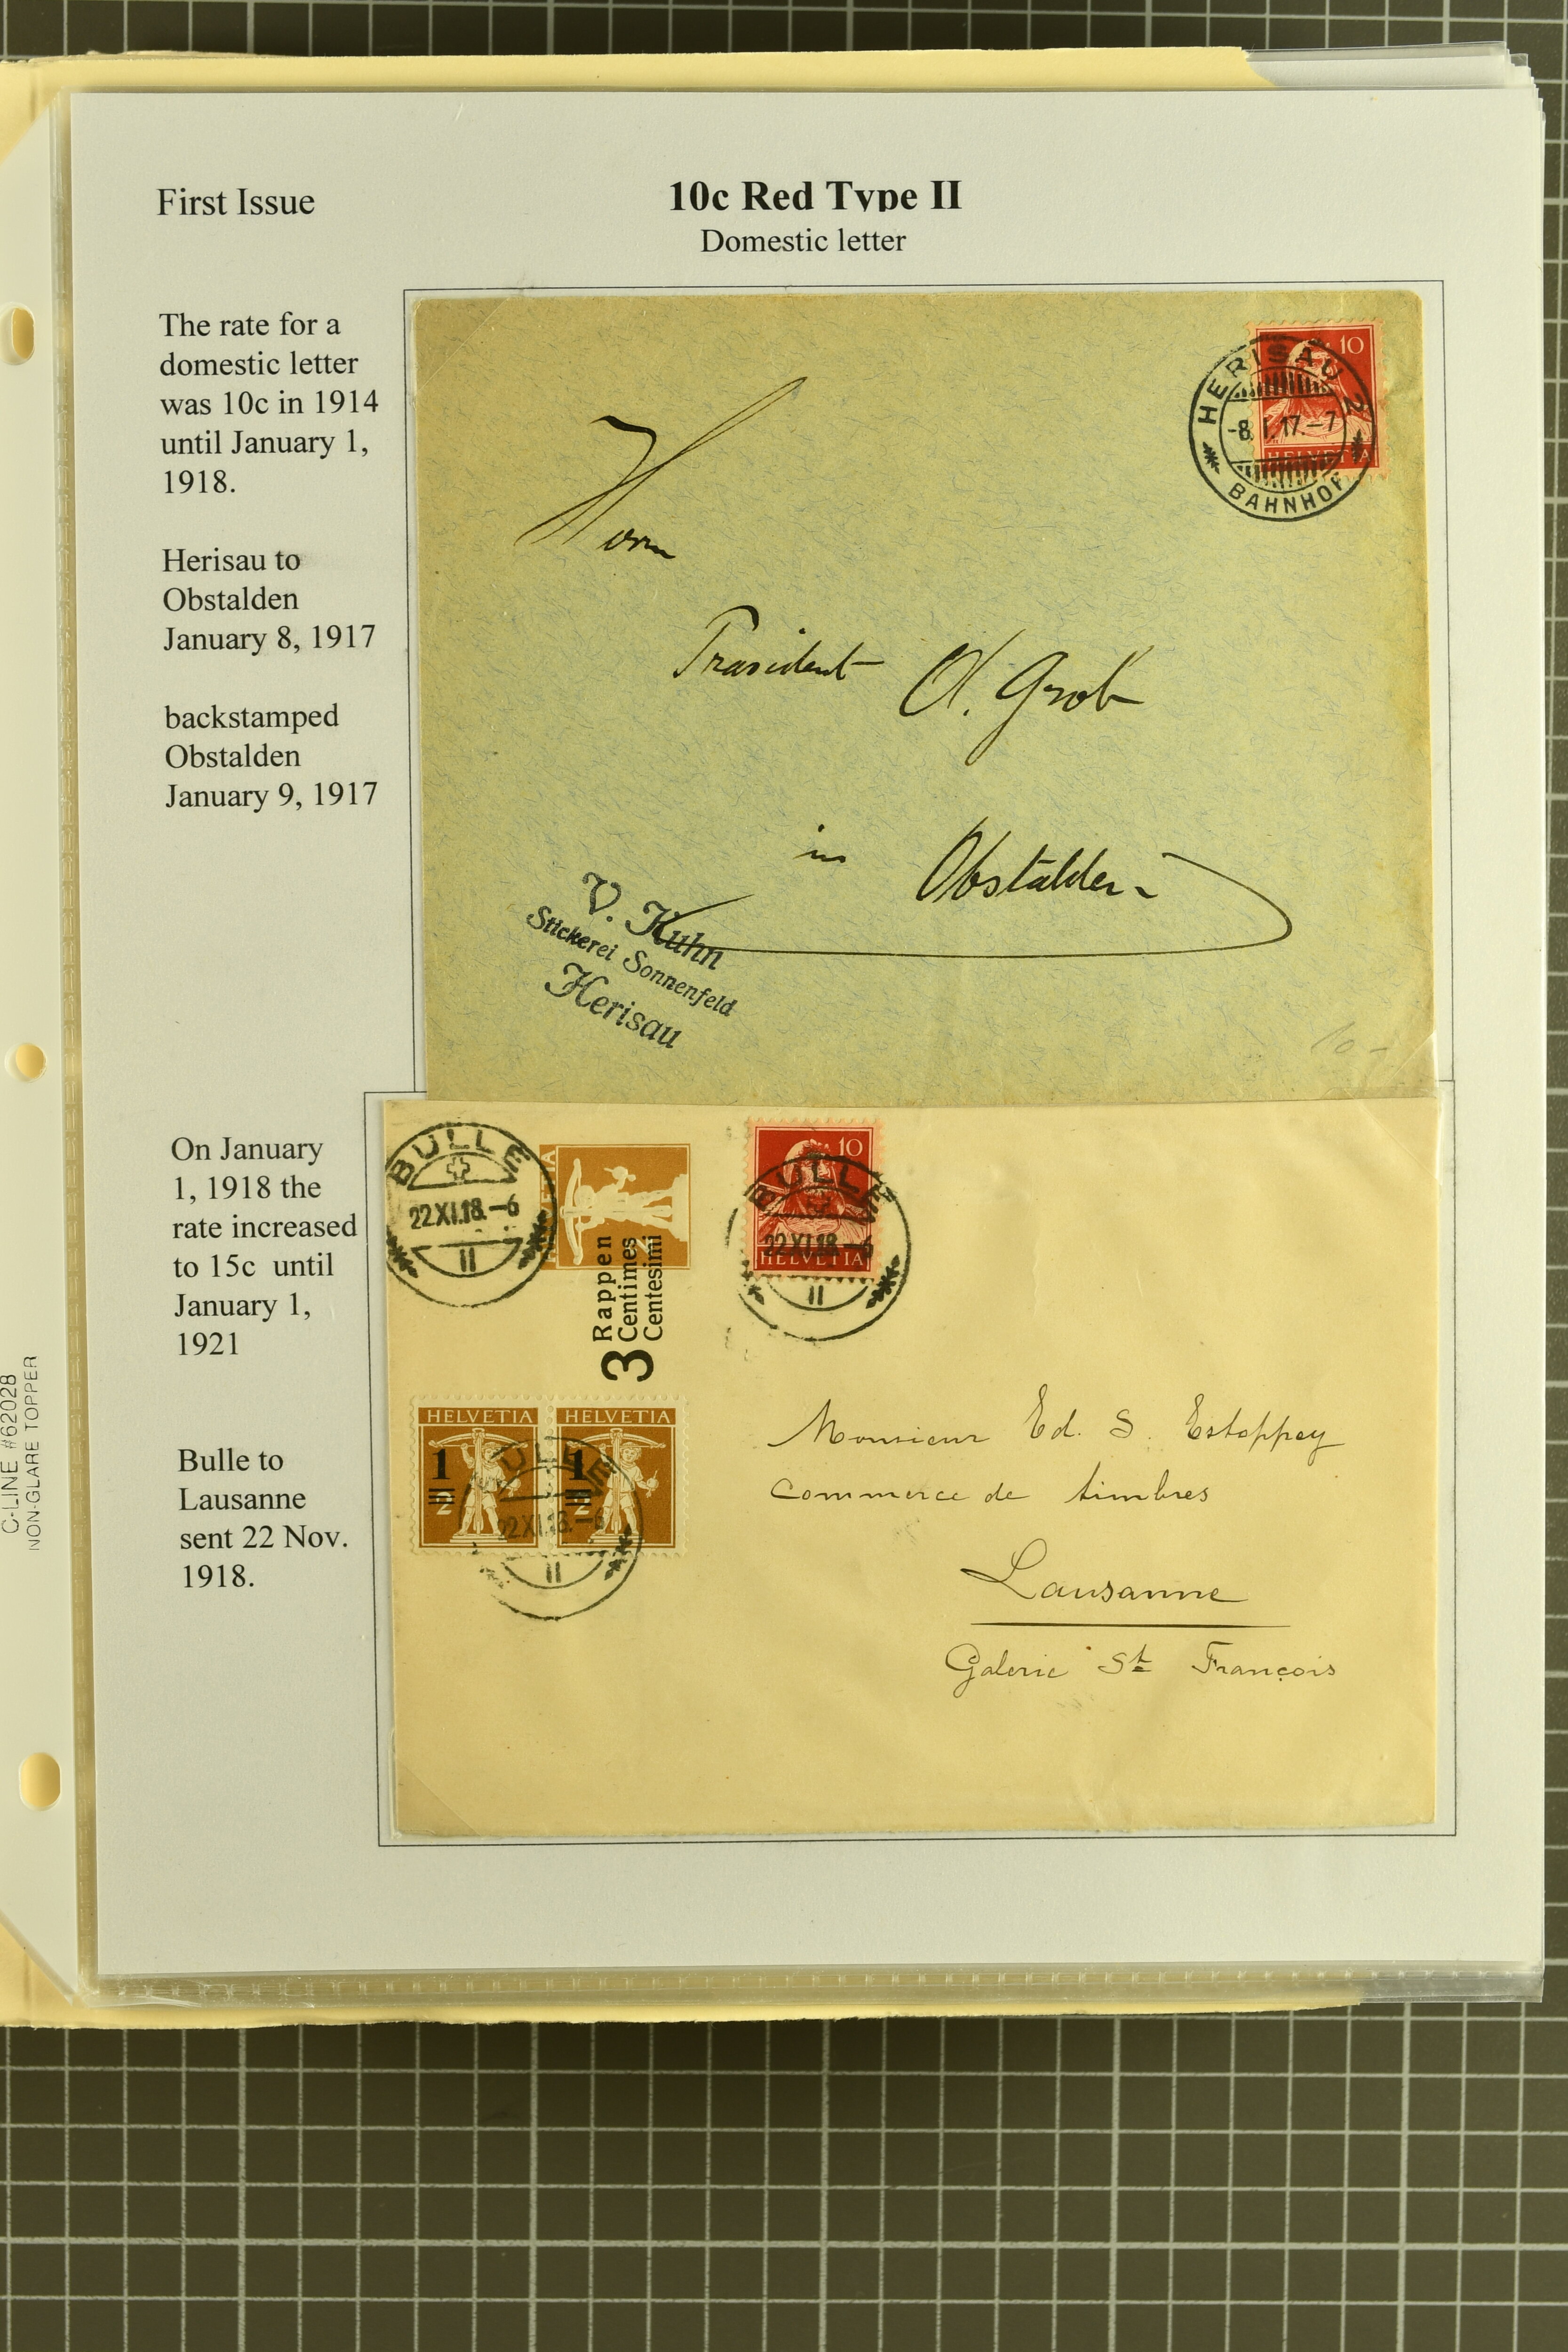 First Issue
10c Red Type II
Domestic letter
The rate for a
domestic letter
was 10c in 1914
until January 1,
1918.
Herisau to
Obstalden
January 8, 1917
backstamped
Obstalden
January 9, 1917
10
HELVETIA
HERISAU 2
-8.I.17.-7
BAHNHOF
Herrn
Präsident O. Grob
in Obstalden
V. Kuhn
Stickerei Sonnenfeld
Herisau
10-
On January
1, 1918 the
rate increased
to 15c until
January 1,
1921
Bulle to
Lausanne
sent 22 Nov.
1918.
BULLE
22 XI.18.-6
II
3 Rappen
Centimes
Centesimi
10
HELVETIA
BULLE
22 XI.18.-6
II
HELVETIA
1
2
HELVETIA
1
2
BULLE
22 XI.18.-6
II
Monsieur Ed. S. Estoppey
commerce de timbres
Lausanne
Galerie St François
C-LINE #62028
NON-GLARE TOPPER